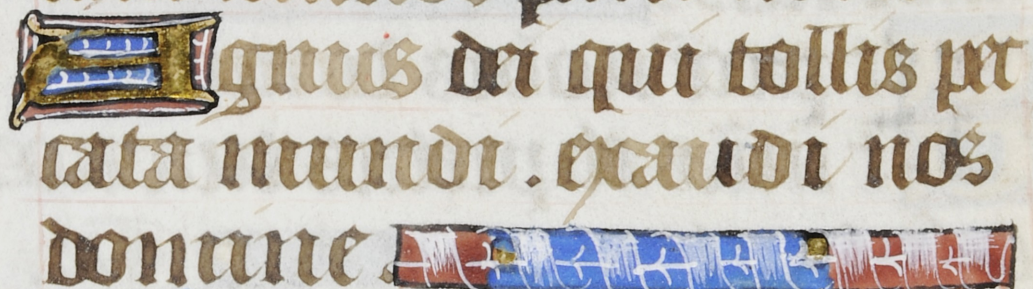 Agnus dei qui tollis pec
cata mundi . exaudi nos
domine .